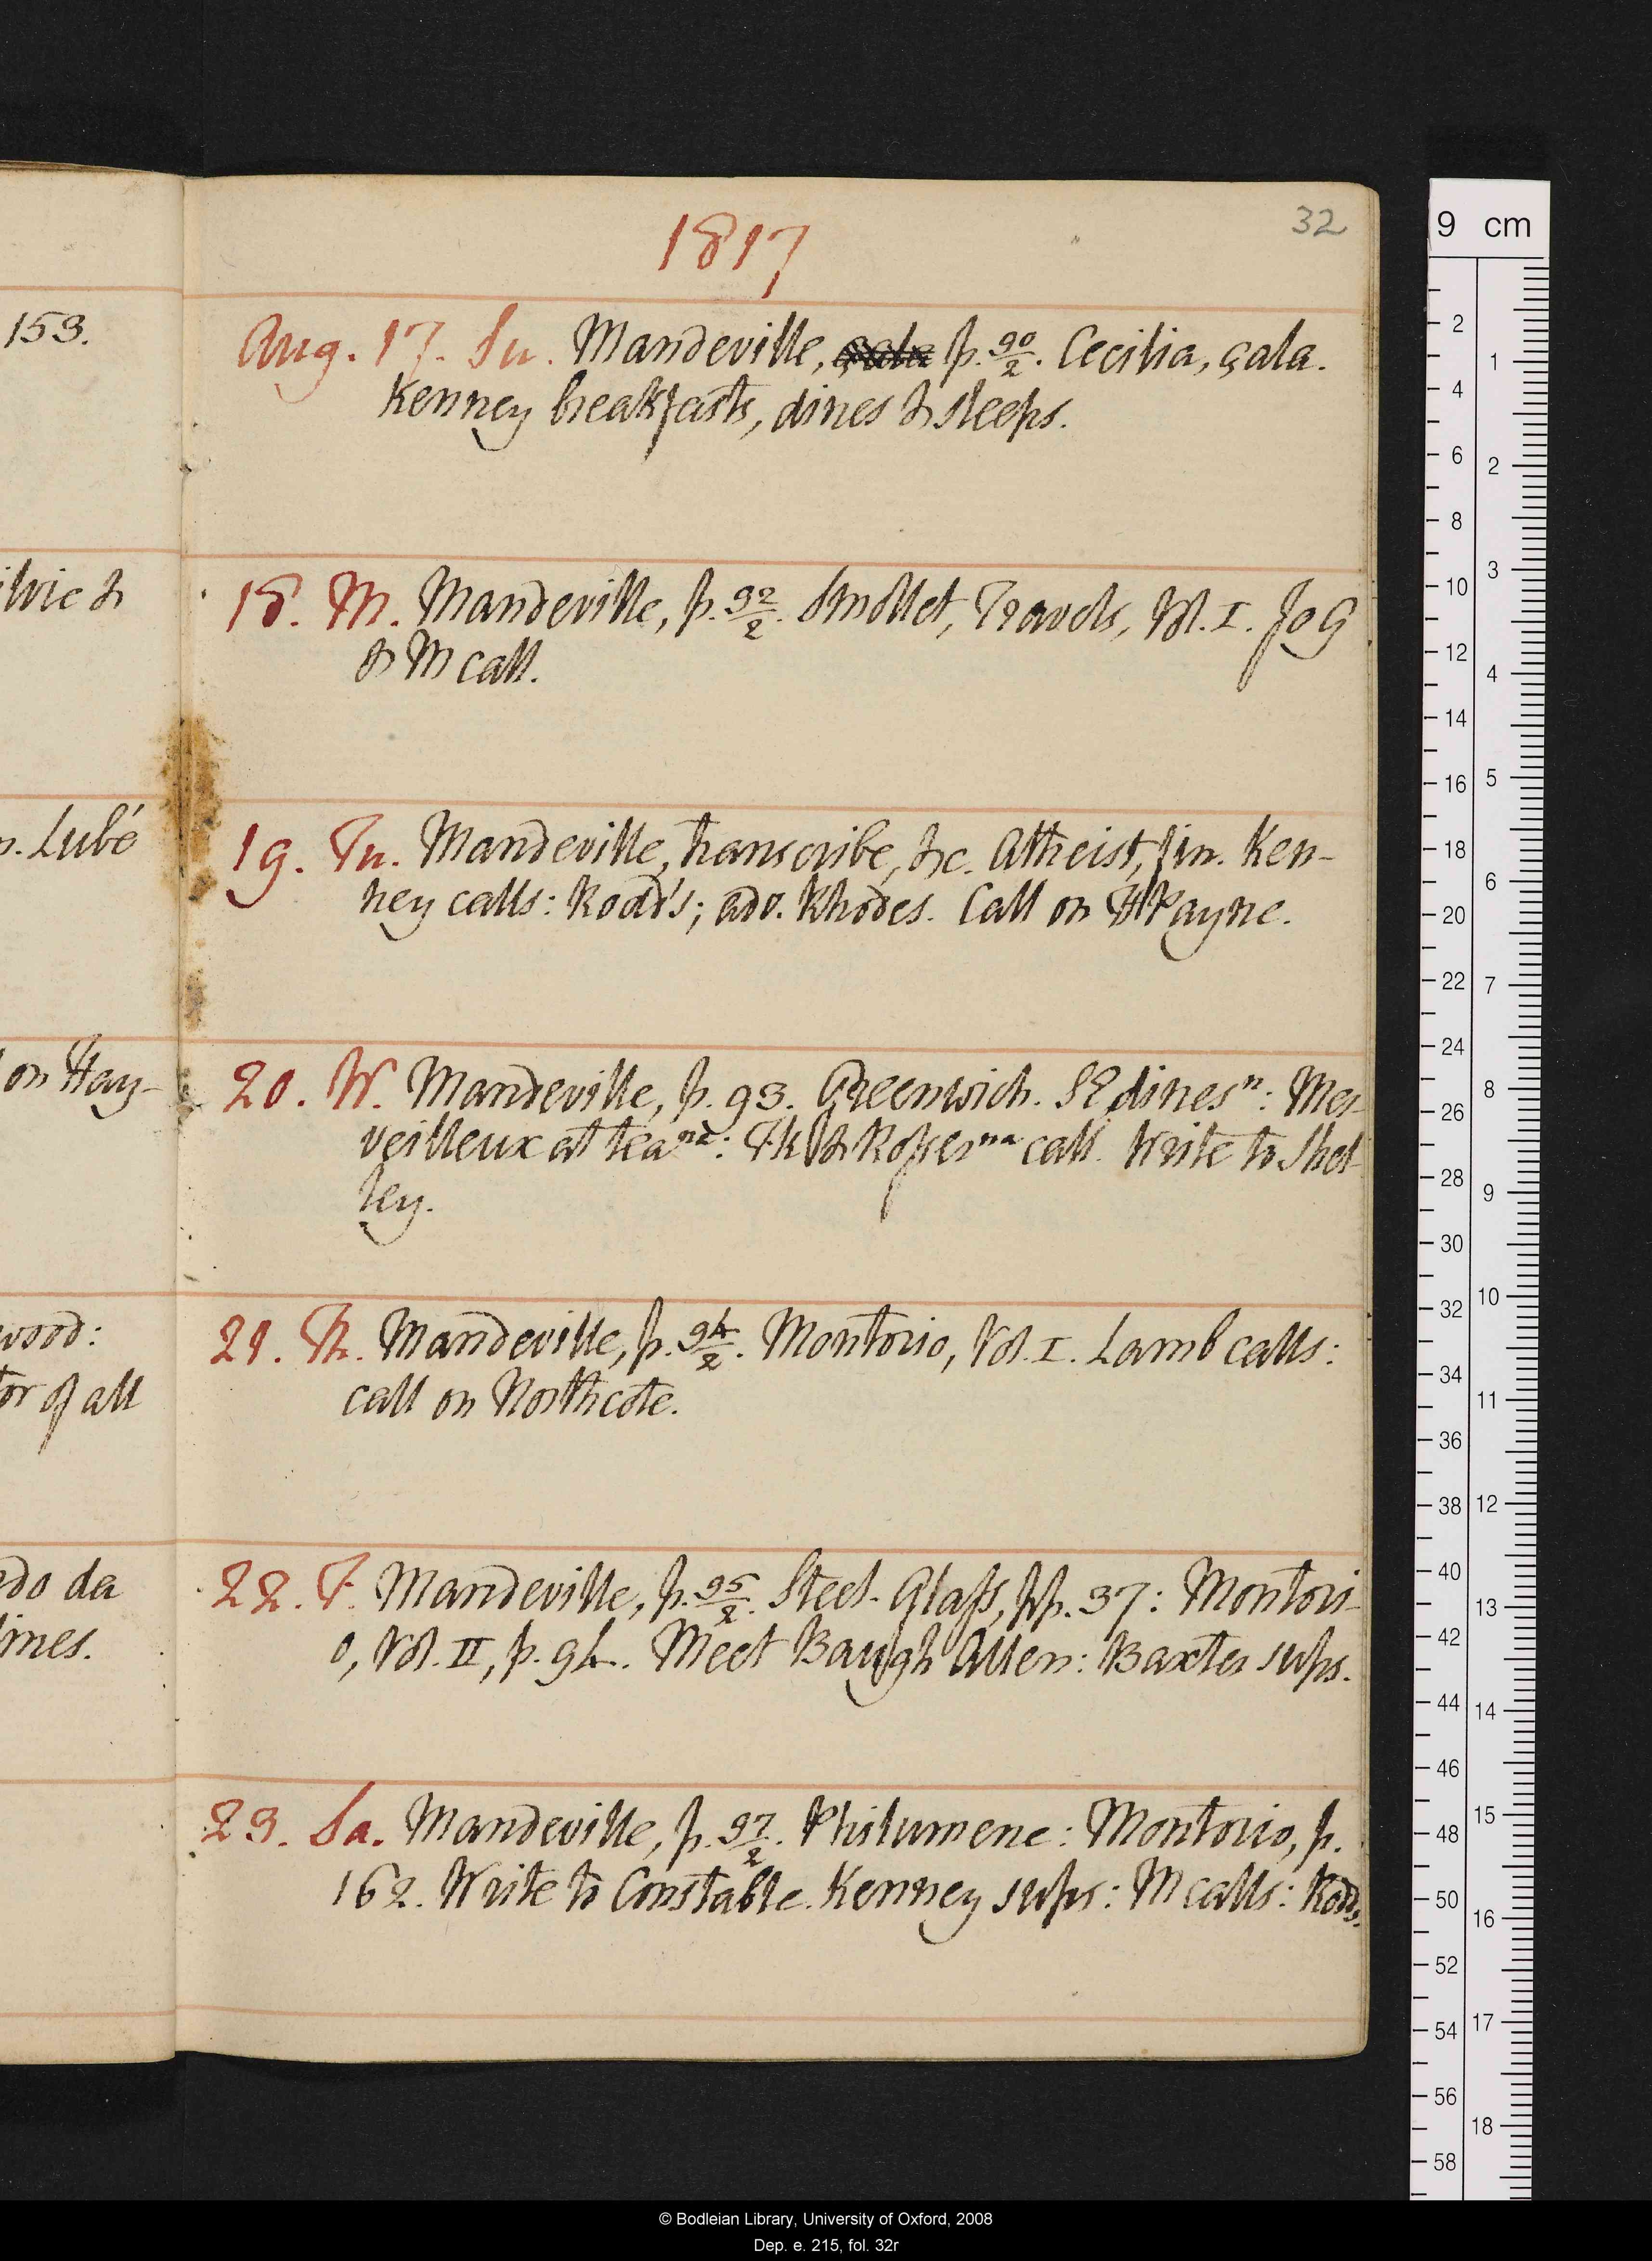 32
1817
153.
Aug. 17. Su. Mandeville, çala p. 90/2. Cecilia, çala.
Kenney breakfasts, dines & sleeps.
ilvie &
18. M. Mandeville, p. 92/2. Smollet, Travels, Vol. I. Jo G
& M call.
Lubé
19. Tu. Mandeville, transcribe, &c. Atheist, fin. Ken-
ney calls: Rodd's; adv. Rhodes. Call on H Payne.
on Hay-
20. W. Mandeville, p. 93. Greenwich. SE dines n: Mer-
veilleux at tea na: T k & Roper na call. Write to Shel-
ley.
wood:
tor of all
21. Th. Mandeville, p. 94/2. Montorio, Vol. I. Lamb calls:
call on Northcote.
do da
ines.
22. F. Mandeville, p. 95/2. Steel-Glass, pp. 37: Montori-
o, Vol. II, p. 94. Meet Baugh Allen: Baxter sups.
23. Sa. Mandeville, p. 97/2. Philumene: Montorio, p.
162. Write to Constable. Kenney sups: M calls: Rodd's.
9 cm
2 4 6 8 10 12 14 16 18 20 22 24 26 28 30 32 34 36 38 40 42 44 46 48 50 52 54 56 58
1 2 3 4 5 6 7 8 9 10 11 12 13 14 15 16 17 18
© Bodleian Library, University of Oxford, 2008
Dep. e. 215, fol. 32r